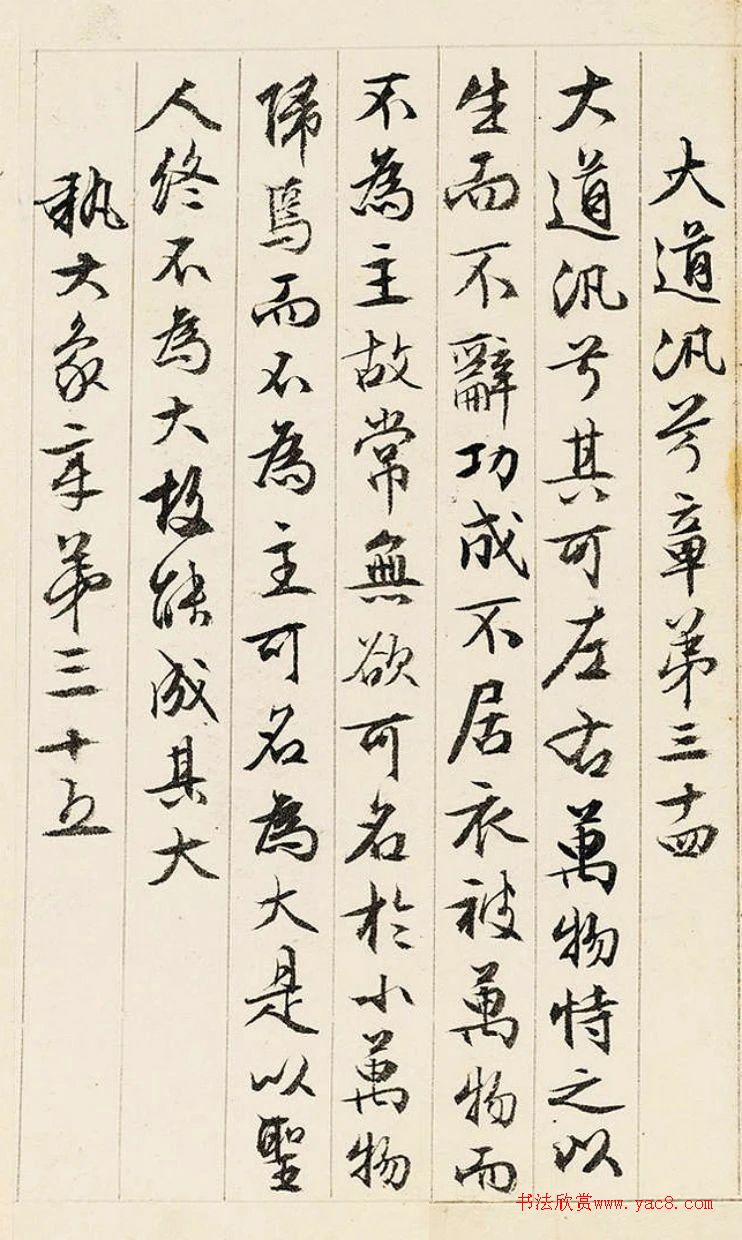 大道汎兮章第三十四
大道汎兮其可左右萬物恃之以
生而不辭功成不居衣被萬物而
不為主故常無欲可名於小萬物
歸焉而不為主可名為大是以聖
人終不為大故能成其大
執大象章第三十五
书法欣赏www.yac8.com